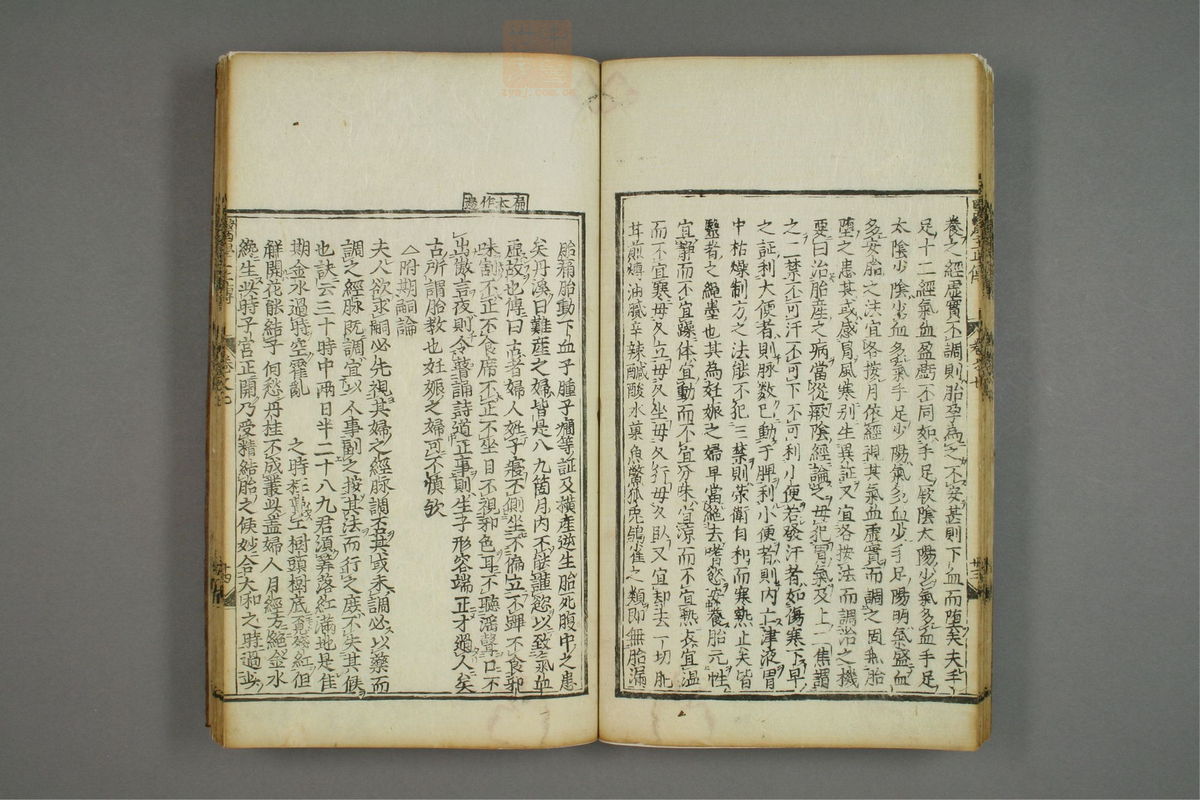 養之經虛實不調則胎孕爲之不安甚則下血而堕矣夫手
足十二經氣血盈虧不同如手足厥陰太陽少氣多血手足
太陰少陰少血多氣手足少陽氣多血少手足陽明氣盛血
多安胎之法宜各按月依經視其氣血虛實而調之囙無胎
堕之患其或感冒風寒别生異証又宜各按法而調治之機
要曰治胎産之病當從厥陰經論之毋犯胃氣及上二焦謂
之三禁不可汗不可下不可利小便若發汗者如傷寒下早
之証利大便者則脉数已動于脾利小便者則内亡津液胃
中枯燥制方之法能不犯三禁則荣衛自和而寒熱止矣皆
醫者之繩墨也其為妊娠之婦早當絶去嗜慾安養胎元性
宜静而不宜躁体宜動而不宜逸味宜涼而不宜熱衣宜温
而不宜寒毋久立毋久坐毋久行毋久臥又宜却去一切肥
甘煎煿油膩辛辣鹹酸水菓魚鱉狐兎鴿雀之類即無胎漏
胎痛胎動下血子腫子癎等証及横産逆生胎死腹中之患
矣丹溪曰難産之婦皆是八九箇月内不能謹慾以致氣血
虛故也傳曰古者婦人姙子寝不側坐不偏立不蹕不食邪
味割不正不食席不正不坐目不視邪色耳不聴滛聲口不
出傲言夜則令瞽誦詩道正事則生子形容端正才過人矣
古所謂胎教也妊娠之婦可不慎欤
△附期嗣論
夫人欲求嗣必先視其婦之經脉調否其或未調必以藥而
調之經脉既調宜以人事副之按其法而行之庶不失其候
也訣云三十時中両日半二十八九君湏筭落紅滿地是佳
期金水過時空霍乱　之時枉費工樹頭樹底覓殘紅但
觧開花能結子何愁丹桂不成叢此蓋婦人月經方絶金水
纔生此時子宮正開乃受精結胎之候妙合大和之時過此